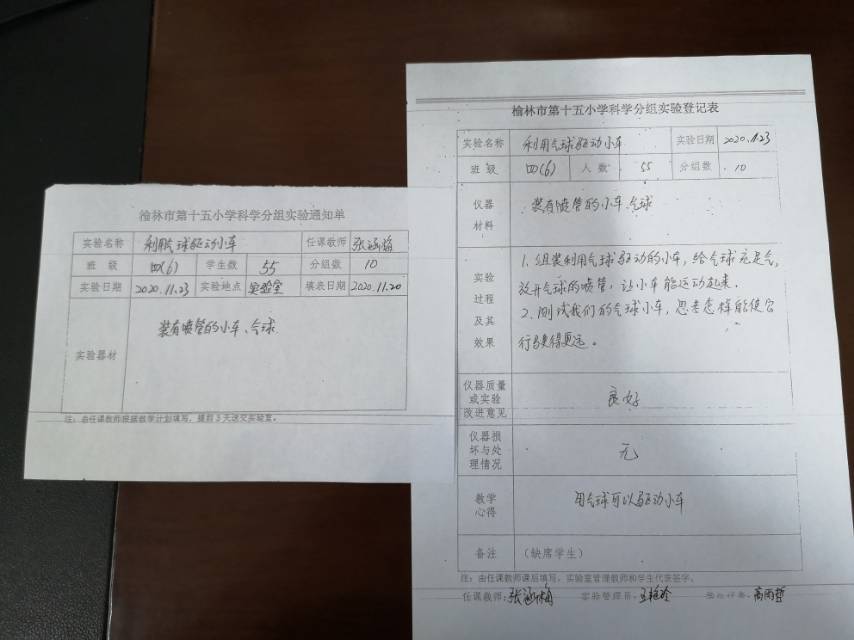 榆林市第十五小学科学分组实验通知单
实验名称 利用气球驱动小车 任课教师
班 级 四(6) 学生数 55 分组数 10
实验日期 2020.11.23 实验地点 实验室 填表日期 2020.11.20
实验器材 装有喷管的小车、气球
注：由任课教师根据教学计划填写，提前3天送交实验室。
榆林市第十五小学科学分组实验登记表
实验名称 利用气球驱动小车 实验日期 2020.11.23
班 级 四(6) 人 数 55 分组数 10
仪器材料 装有喷管的小车、气球
实验过程及其效果
1. 组装利用气球驱动的小车，给气球充足气，
放开气球的喷管，让小车能运动起来.
2. 测试我们的气球小车，思考怎样能使它
行驶得更远。
仪器质量或实验改进意见 良好
仪器损坏与处理情况 无
教学心得 用气球可以驱动小车
备注 (缺席学生)
注：由任课教师课后填写，实验室管理教师和学生代表签字。
任课教师： 实验管理员： 高雨哲